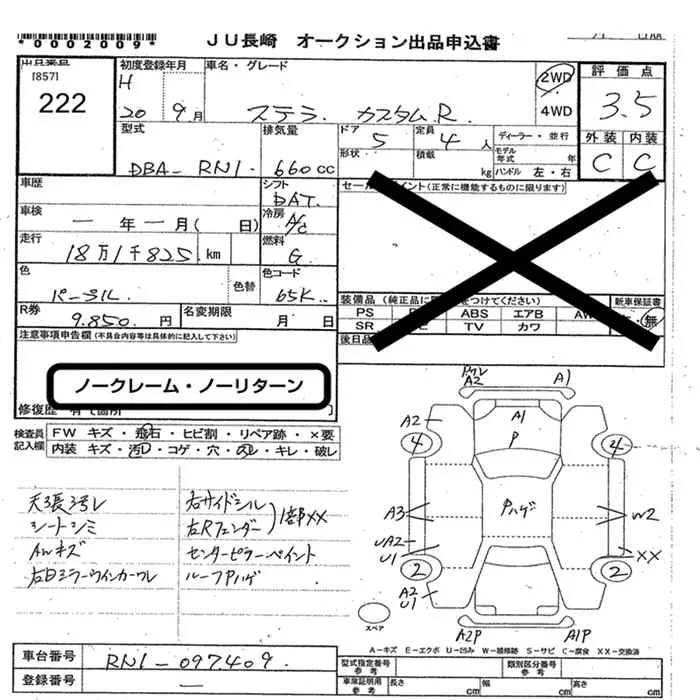 *0002009*
JU長崎 オークション出品申込書
出品票番
[857]
222
初度登録年月
H
20 9月
車名・グレード
ステラ カスタムR
2WD
4WD
評価点
3.5
外装 内装
C C
型式
DBA- RN1.
排気量
660cc
ドア 5
形状
定員 4人
積載 kg
ディーラー・並行
モデル年式 年
ハンドル 左・右
車歴
シフト
DAT.
車検 — 年 — 月( 日)
冷房
A/C
走行
18万1千825 km
燃料
G
色
パープル.
色替
色コード
65K
R券
9.850. 円
名変期限
月 日
セールスポイント(正常に機能するものに限ります)
装備品(純正品に をつけてください)
新車保証書
PS ABS エアB AW
SR TV カワ
無
後日品
注意事項申告欄(不具合内容等は具体的に記入して下さい)
ノークレーム・ノーリターン
修復歴 有〔箇所 〕
検査員記入欄
FW キズ・飛石・ヒビ割・リペア跡・×要
内装 キズ・汚レ・コゲ・穴・スレ・キレ・破レ
天張ヨゴレ
シートシミ
AWキズ
右ドミラーウインカーワレ
右サイドシル
左Rフェンダー
1部XX
センターピラーペイント
ルーフPハゲ
ワレ
A2
A1
A2
A1
P
4
4
Pハゲ
A3
W2
UA2
U1
XX
2
2
A2
U1
スペア
A2P
A1P
A-キズ E-エクボ U-凹み W-補修跡 S-サビ C-腐食 XX-交換済
車台番号
RN1-097409.
登録番号
—
型式指定番号
参考
類別区分番号
参考
車庫証明用
参考
長さ cm
幅 cm
高さ cm